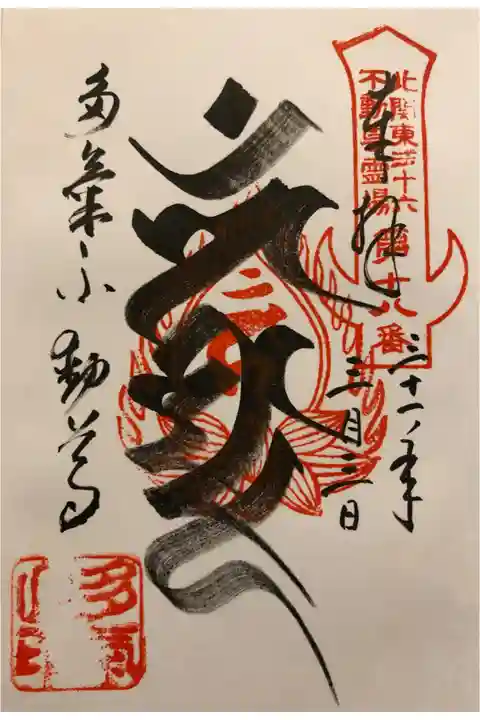 北関東三十六
不動尊霊場
第十八番
奉拝
三十一年
三月三日
多氣不動尊